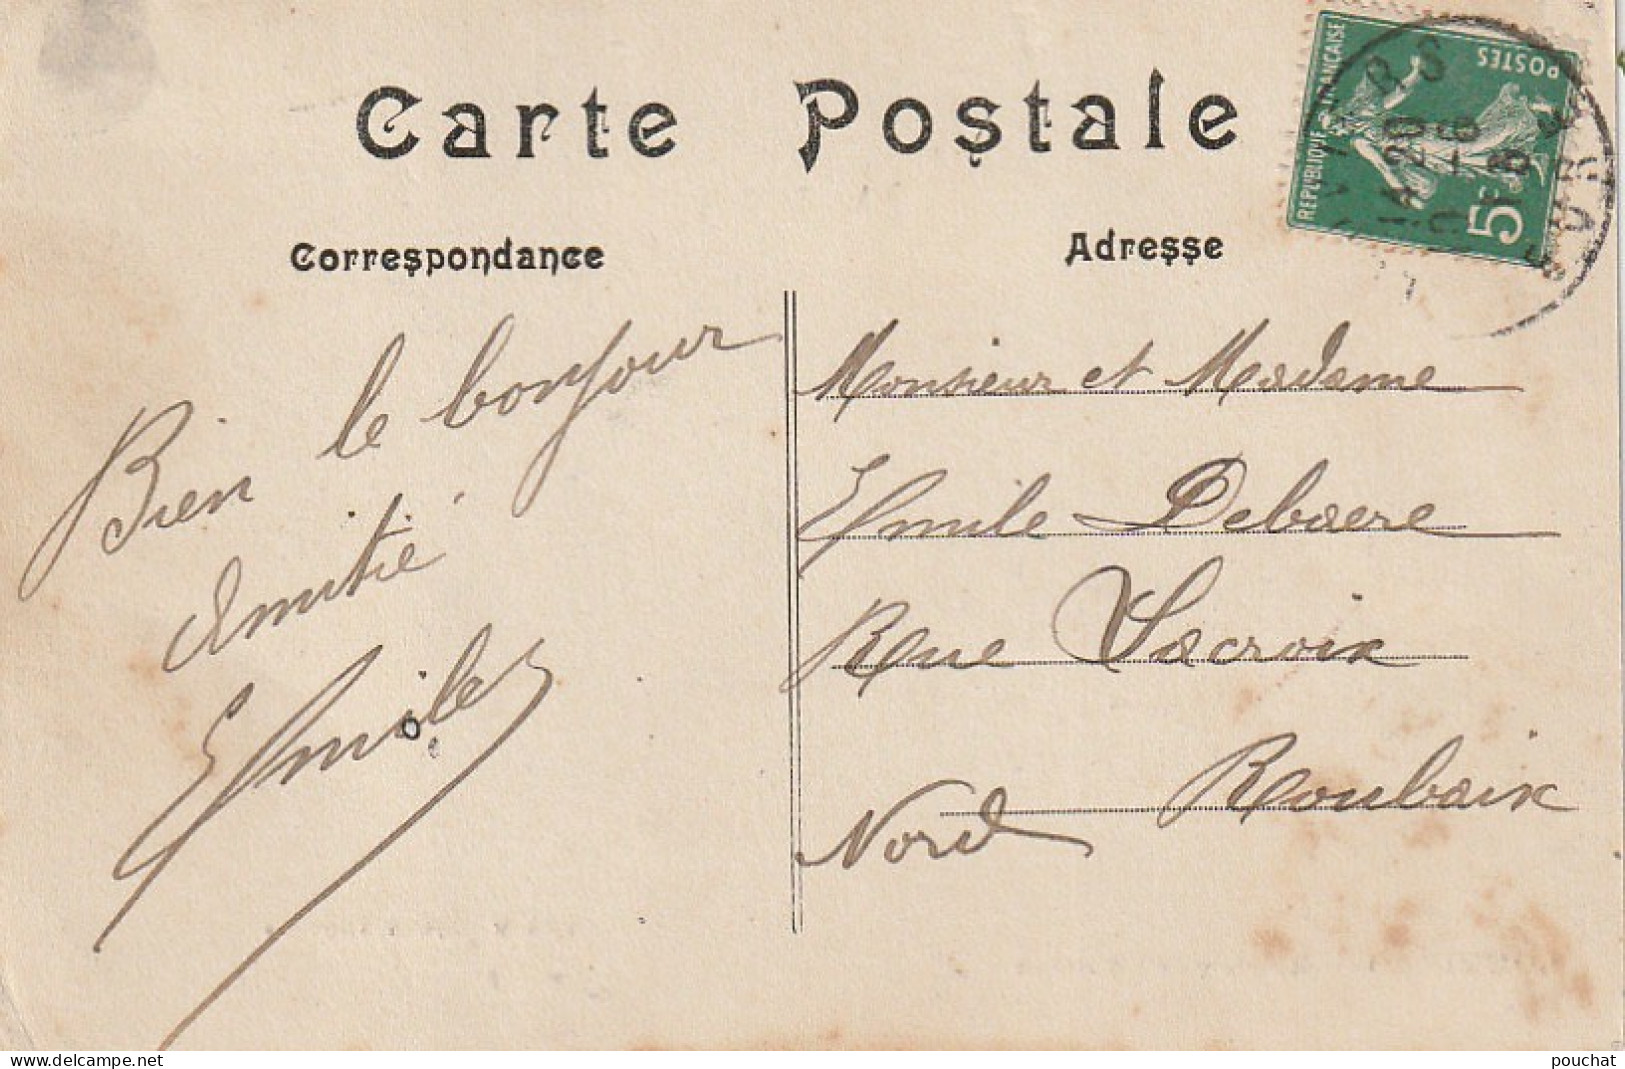 Carte Postale
Correspondance
Bien le bonjour
Amitié
Emile
Adresse
Monsieur et Madame
Emile Debaere
Rue Lacroix
Roubaix
Nord
REPUBLIQUE FRANCAISE
POSTES
5c
pouchat